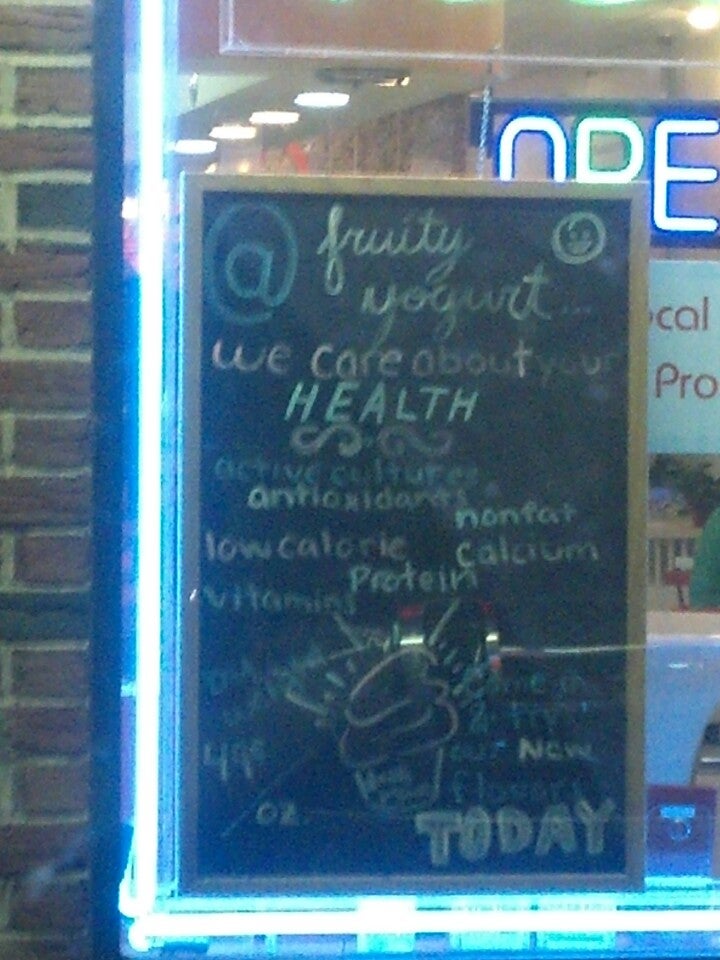 OPE
@ fruity
yogurt...
we care about your
HEALTH
active cultures
antioxidants
nonfat
low calorie
calcium
Protein
vitamins
49¢
oz.
come in
& try
our New
flavors
TODAY
ocal
Pro